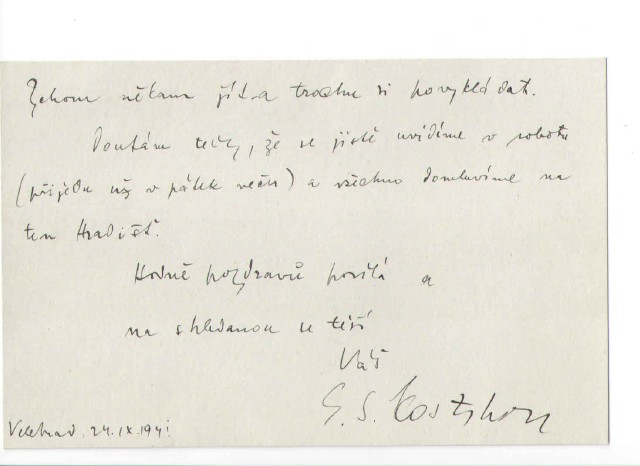 někam jít a trochu si povykládat.
Doufám tedy, že se jistě uvidíme v sobotu
(přijedu už v pátek večer) a všechno domluvíme na
ten Hradišť.
Hodně pozdravů posílá a
na shledanou se těší
Váš
Velehrad, 24.IX.1941